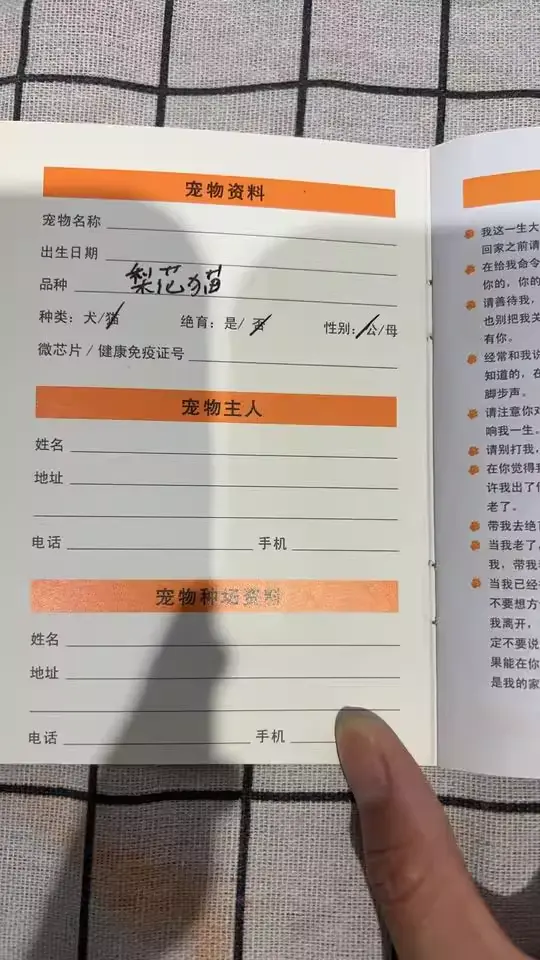 宠物资料
宠物名称
出生日期
品种 梨花猫
种类：犬/猫 绝育：是/否 性别：公/母
微芯片 / 健康免疫证号
宠物主人
姓名
地址
电话 手机
宠物种场资料
姓名
地址
电话 手机
我这一生大
回家之前请
在给我命令
你的，你的
请善待我，
也别把我关
有你。
经常和我说
知道的，在
脚步声。
请注意你对
响我一生。
请别打我，
在你觉得我
许我出了什
老了。
带我去绝育
当我老了，
我，带我
当我已经
不要想方
我离开，
定不要说
果能在你
是我的家